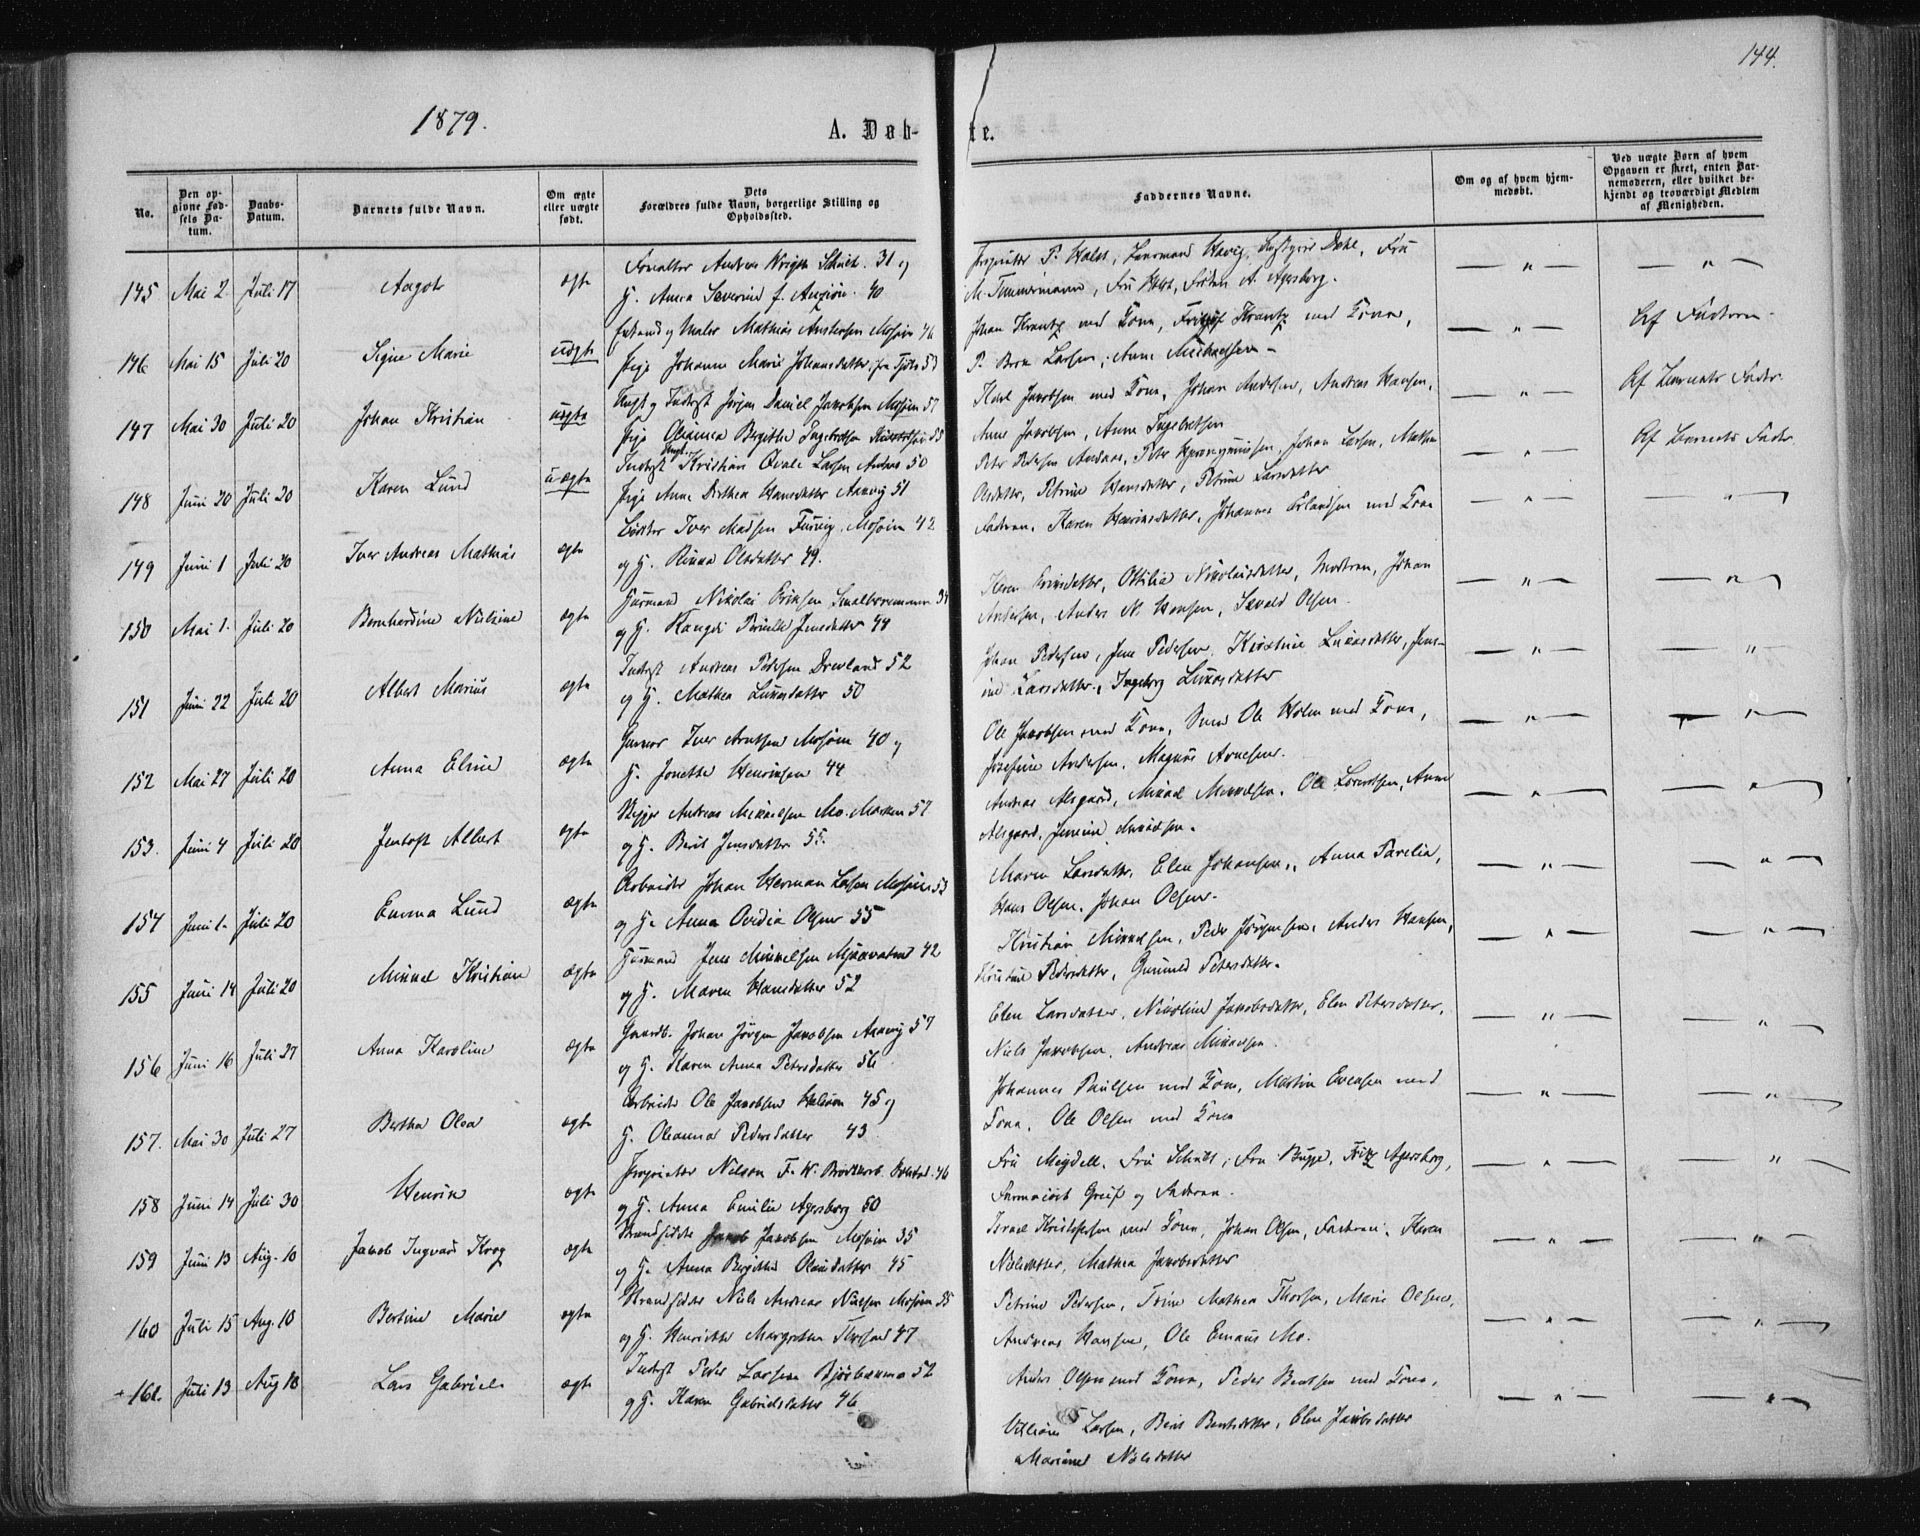 144.
1879.
A. Døb-
te.
No.
Den op-
givne Fød-
sels Da-
tum.
Daabs-
Datum.
Barnets fulde Navn.
Om ægte
eller uægte
født.
Dets
Forældres fulde Navn, borgerlige Stilling og
Opholdssted.
Faddernes Navne.
Om og af hvem hjem-
medøbt.
Ved uægte Børn af hvem
Opgaven er skeet, enten Bar-
nemoderen, eller hvilket be-
kjendt og troværdigt Medlem
af Menigheden.
145 Mai 2. Juli 17 Aagot ægte
31 og
H. Anna Severine f. 40
Proprietær P. Holst, Lensmand Havig, Dahl, Frü
M. Timmermann, Frü Holst, Frøken A. Agersborg.
146 Mai 15 Juli 20 Signe Marie uægte
og Maler Mathias Andersen Mosjøen 46
Pige Johanna Marie Johansdatter, fra Tjøtta 53
Johan Krantz med Kone, Fritjof Krantz med Kone,
P. Bern. Larsen, Anne Michaelsen
Af Faderen
147 Mai 30 Juli 20 Johan Kristian uægte
Ungk. og Inderst Jørgen Daniel Jakobsen Mosjøen 57
Pige Oleanna Bergitte Ingebretsen 55
Karl Jakobsen med Kone, Johan Andersen, Andreas Hansen,
Anne Jakobsen, Anne Ingebretsen
Af Barnets Fader.
148 Juni 20 Juli 20 Karen Lund uægte
Inderst Ungk. Kristian Qvale Larsen Andaas 50
Pige Anne Dorthea Hansdatter Aanvig 51
Peter Pedersen Andaas, Peter Hieronymussen, Johan Larsen,
Olsdatter, Petrine Hansdatter, Petrine Larsdatter
Af Barnets Fader.
149 Juni 1 Juli 20 Iver Andreas Mathias ægte
Iver Madsen Mosjøen 42
og H. Olsdatter 49.
Faderen, Karen Henriksdatter, Johannes Erlandsen med Kone
150 Mai 1. Juli 20 Bernhardine Nilsine ægte
Huusmand Nikolai Eriksen 34
og H. Pernille Jensdatter 44
Karen Eriksdatter, Ottilia Nikolaisdatter, Moderen, Johan
Andersen, Anders N. Hansen, Sivald Olsen.
151 Juni 22 Juli 20 Albert Marius ægte
Inderst Andreas Pedersen Drevland 52
og H. Mathea Lukasdatter 50
Johan Pedersen, Jens Pedersen, Kirstine Lukasdatter, Jens-
ine Larsdatter, Ingeborg Lukasdatter
152 Mai 27 Juli 20 Anna Elrine ægte
Garver Iver Arntsen Mosjøen 40 og
H. Jonetta Henriksen 44
Ole Jakobsen med Kone, Smed Ole Holm med Kone,
Josefine Andersen, Magnus Arnesen.
153. Juni 4 Juli 20 Jentoft Albert ægte
Bygger Andreas Mikkelsen Mo. Marken 57
og H. Berit Jensdatter 55.
Andreas Alsgaard, Mikkel Mikkelsen, Ole Lorentsen, Anne
Alsgaard, Jensine Mikkelsen.
154 Juni 1. Juli 20 Emma Lund ægte
Arbeider Johan Herman Larsen Mosjøen 53
og H. Anna Ovidia Olsen 55
Maren Larsdatter, Elen Johansen, Anna Parelia,
Hans Olsen, Johan Olsen.
155 Juni 14 Juli 20 Mikkel Kristian ægte
Huusmand Jens Mikkelsen Mjaavatnet 42
og H. Maren Hansdatter 52
Kristian Mikkelsen, Peder Jørgensen, Anders Hansen,
Kristine Pedersdatter, Gunnild Petersdatter.
156 Juni 16 Juli 27 Anna Karoline ægte
Gaardb. Johan Jørgen Jakobsen Aanvig 57
og H. Karen Anna Petersdatter 56
Elen Larsdatter, Nikoline Jakobsdatter, Elen Petersdatter,
Niels Jakobsen, Andreas Mikkelsen.
157. Mai 30 Juli 27 Bertha Olea ægte
Arbeider Ole Jakobsen Halsøen 45 og
H. Oleanna Pedersdatter 43
Johannes Paulsen med Kone, Martin Evensen med
Kone, Ole Olsen med Kone
158 Juni 14 Juli 30 Henrik ægte
Proprietær Nelson F. W. Brodtkorb 46
og H. Anna Emilie Agersborg 50
Frü Meydell, Frü Schult, Frü Bugge, Fritz Agersborg,
Farmaceut Greif og Faderen.
159 Juni 13 Aug. 10 Jakob Ingvard Krog ægte
Strandsidder Jakob Jakobsen Mosjøen 35
og H. Anna Birgitte Olausdatter 45
Israel Kristophersen med Kone, Johan Olsen, Faderen, Karen
Nilsdatter, Mathea Jakobsdatter
160 Juli 15 Aug. 10 Bertine Marie ægte
Strandsidder Niels Andreas Nielsen Mosjøen 35
og H. Henriette Margrethe 47
Petrine Pedersen, Trine Mathea Thorsen, Marie Olsen,
Andreas Hansen, Ole Emaus Mo.
161. Juli 13 Aug 10 Lars Gabriel ægte
Inderst Peder Larsen Bjørbækmo 52
og H. Karen Gabrielsdatter 46
Anders Olsen med Kone, Peder Bentsen med Kone,
Larsen, Berit Bentsdatter, Elen Jakobsdatter
Mariane Nilsdatter